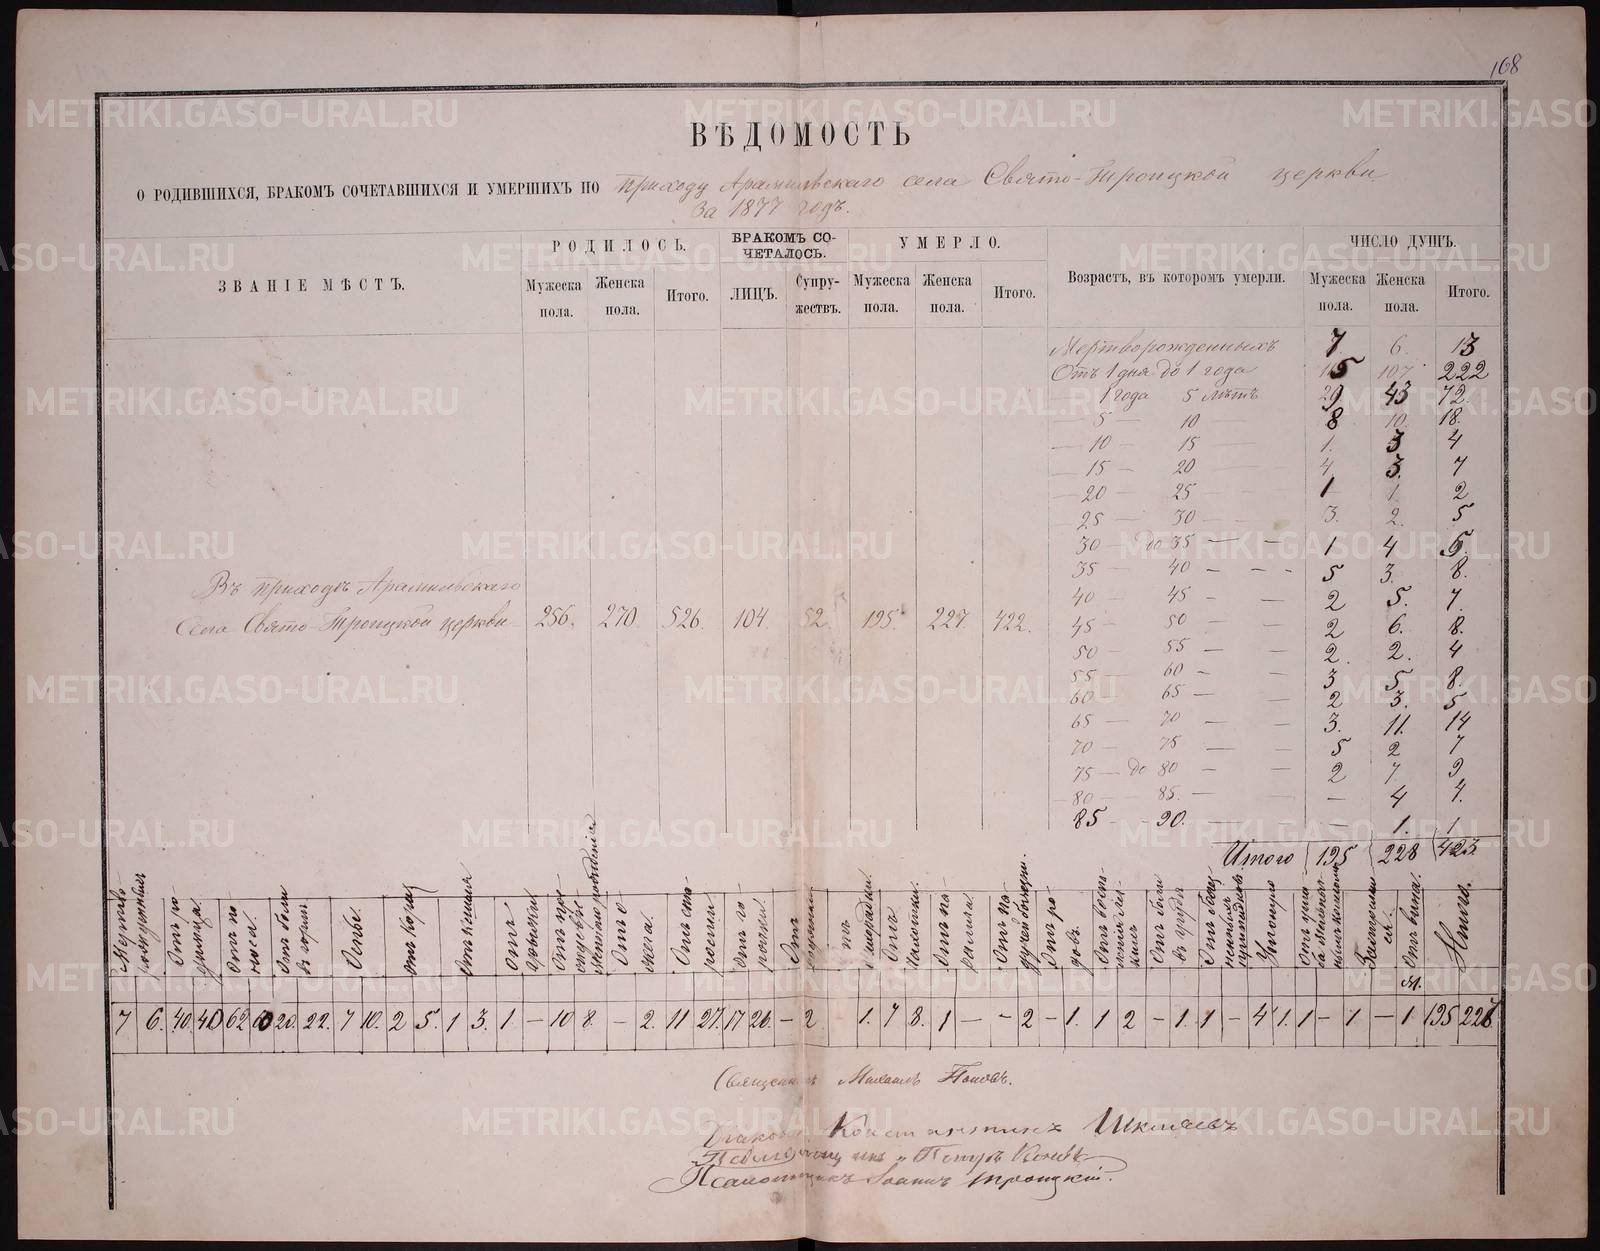 168
ВѢДОМОСТЬ
О РОДИВШИХСЯ, БРАКОМЪ СОЧЕТАВШИХСЯ И УМЕРШИХЪ ПО приходу Арамильскаго села Свято-Троицкой церкви
За 1877 годъ.
ЗВАНІЕ МѢСТЪ. РОДИЛОСЬ. БРАКОМЪ СОЧЕТАЛОСЬ. УМЕРЛО. Возрастъ, въ которомъ умерли. ЧИСЛО ДУШЪ.
Мужеска пола. Женска пола. Итого. ЛИЦЪ. Супружествъ. Мужеска пола. Женска пола. Итого. Мужеска пола. Женска пола. Итого.
Мертворожденныхъ 7 6. 13
Отъ 1 дня до 1 года 115 107 222
1 года 5 лѣтъ 29 43 72.
5 — 10 8 10. 18.
— 10 — 15 1. 3 4
— 15 — 20 4 3. 7
20 — 25 1 1. 2
25 — 30 3. 2. 5
30 — до 35 — — 1 4 5.
35 40 — — - 5 3. 8.
40 — 45 — — 2 5. 7.
45 — 50 — — 2 6. 8.
50 — 55 — — 2. 2. 4
55 — 60 — 3 5 8.
60 — 65 — — 2 3. 5
65 — 70 — — 3. 11. 14
70 — 75 — — 5 2 7
75 — до 80 — — 2 7 9
80 — 85. — — — 4 4.
85 90. — — — 1. 1.
Въ приходѣ Арамильскаго
Села Свято-Троицкой церкви 256. 270. 526. 104. 52. 195. 227. 422.
Итого 195 228 423
Мертворожденныхъ Отъ родимца Отъ поноса. Отъ боли въ горлѣ Оспы. Отъ кори Отъ кашля Отъ Отъ Отъ ожога. Отъ старости Отъ горячки. Отъ Отъ Отъ чахотки. Отъ Отъ Отъ родовъ. Отъ Отъ боли въ груди Отъ Утонуло Отъ Отъ вина. Итого.
м.
7 6. 40. 40 62 60 20. 22. 7 10. 2 5. 1 3. 1 — 10 8. — 2. 11 27. 17 26. — 2 1. 7 8. 1 — — 2 — 1. 1 2 — 1. 1 — 4 1. 1 — 1 — 1. 195 228
Священникъ Михаилъ Поповъ.
Константинъ
Псаломщикъ Іоаннъ Троицкій.
METRIKI.GASO-URAL.RU